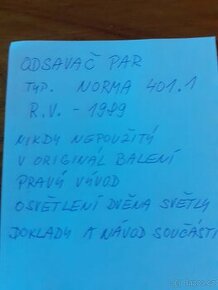 ODSAVAČ PAR
TYP. NORMA 401.1
R.V. - 1989
NIKDY NEPOUŽITÝ
V ORIGINÁL BALENÍ
PRAVÝ VÝVOD
OSVĚTLENÍ DVĚMA SVĚTLY
DOKLADY A NÁVOD SOUČÁSTÍ